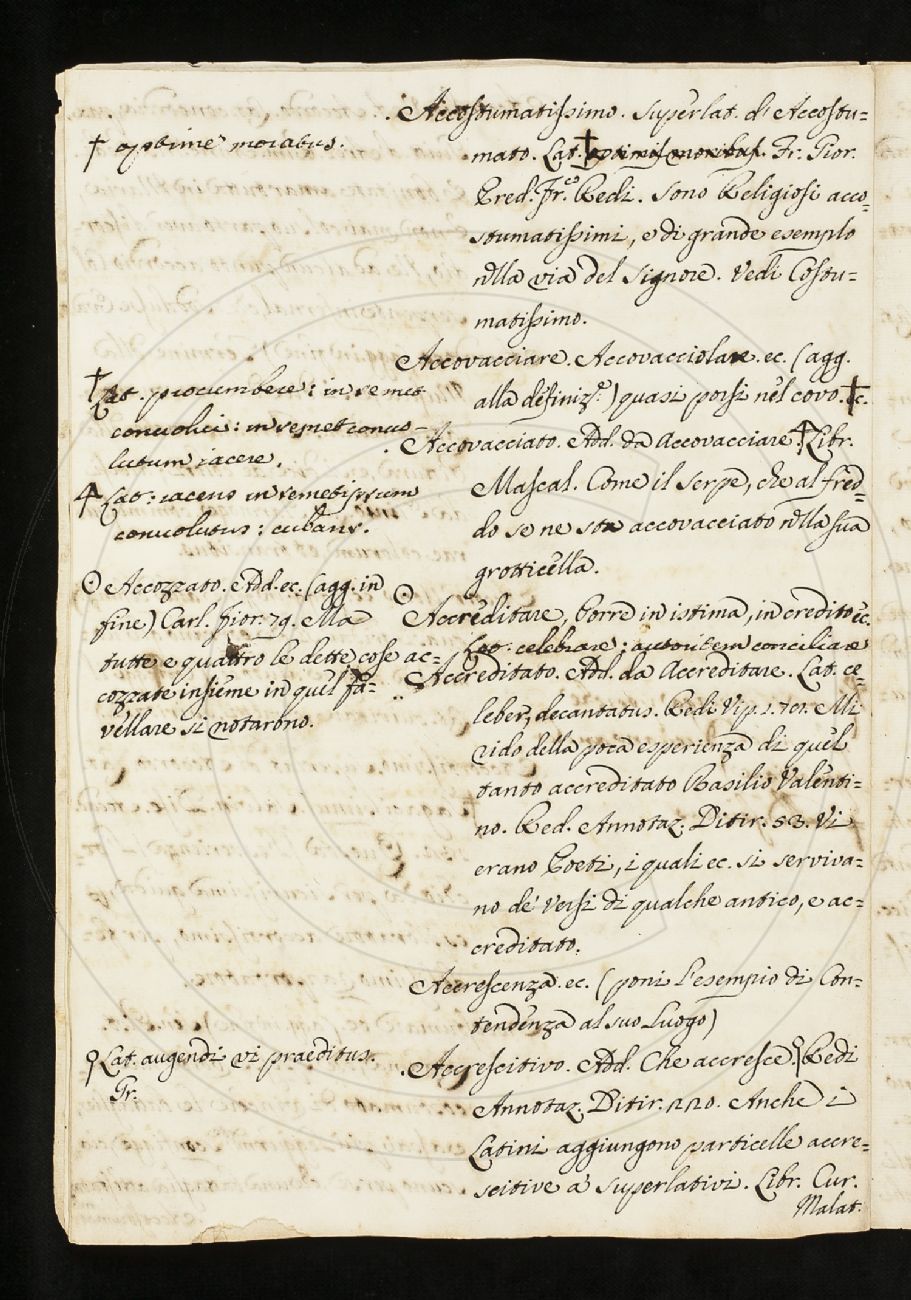 Accostumatissimo. Superlat. di Accostu=
mato. Lat. † optimis moribus. Fr. Gior.
Pred. Fr.co Redi. Sono Religiosi acco=
stumatissimi, e di grande esemplo
nella via del Signore. Vedi Costu=
matissimo.
† optime moratus.
Accovacciare. Accovacciolare. ec. (agg.
alla definiz.e) quasi porsi nel covo. † ec.
† Lat. procumbere: in semet
convolvi: in semet convo-
lutum iacere.
Accovacciato. Add. da Accovacciare. 4 Libr.
Mascal. Come il serpe, che al fred=
do se ne sta accovacciato nella sua
grotticella.
4 Lat: iacens in semetipsum
convolutus: cubans.
⊙ Accozzato. Add. ec. (agg. in
fine) Carl. Fior. 79. Ma
tutte e quattro le dette cose ac=
cozzate insieme in quel fa=
vellare si notarono.
⊙
Accreditare, Porre in istima, in credito ec.
Lat. celebrare: autoritatem conciliare
Accreditato. Add. da Accreditare. Lat. ce=
leber, decantatus. Redi Vip. 1. 701. Mi
rido della poca esperienza di quel
tanto accreditato Basilio Valenti=
no. Red. Annotaz. Ditir. 53. Vi
erano Poeti, i quali ec. si serviva=
no de' versi di qualche antico, e ac=
creditato.
Accrescenza. ec. (poni l'esempio di Con=
tendenza al suo Luogo)
Accrescitivo. Add. Che accresce. Redi
Annotaz. Ditir. 220. Anche i
Latini aggiungono particelle accre=
scitive a' superlativi. Libr. Cur.
Malat.
Lat. augendi vi praeditus.
Gr.